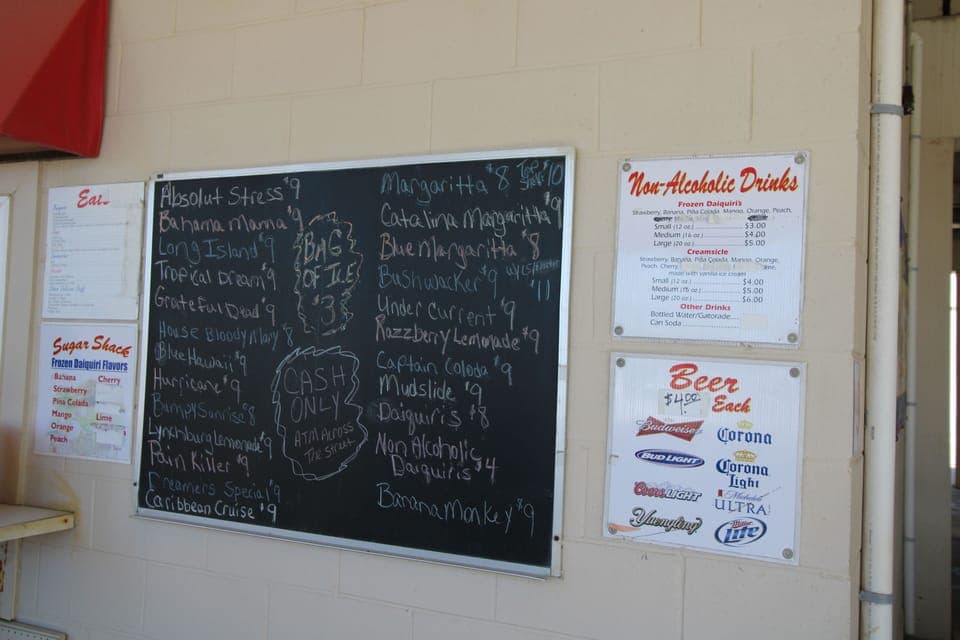 Eat
Sugar Shack
Frozen Daiquiri Flavors
Banana Cherry
Strawberry
Pina Colada
Mango Lime
Orange
Peach
Absolut Stress $9
Bahama Mama $9
Long Island $9
Tropical Dream $9
Grateful Dead $9
House Bloody Mary 8
Blue Hawaii $9
Hurricane $9
Bumpy Sunrise $8
Lynchburg Lemonade $9
Pain Killer $9
Dreamers Special $9
Caribbean Cruise $9
BAG
OF ICE
$3
CASH
ONLY
ATM Across
The street
Margaritta $8 Top Shelf $10
Catalina Margaritta $9
Blue Margaritta $8
Bushwacker $9 w/151 floater $11
Under Current $9
Razzberry Lemonade $9
Captain Coloda $9
Mudslide $9
Daiquiris $8
Non Alcoholic
Daiquiris $4
Banana Monkey $9
Non-Alcoholic Drinks
Frozen Daiquiri's
Strawberry, Banana, Piña Colada, Mango, Orange, Peach,
Small (12 oz.) $3.00
Medium (16 oz.) $4.00
Large (20 oz.) $5.00
Creamsicle
Strawberry, Banana, Piña Colada, Mango, Orange,
Peach, Cherry,
made with vanilla ice cream
Small (12 oz.) $4.00
Medium (16 oz.) $5.00
Large (20 oz.) $6.00
Other Drinks
Bottled Water/Gatorade
Can Soda
Beer
$4.00 Each
Budweiser Corona
BUD LIGHT Corona Light
Coors LIGHT Michelob ULTRA
Yuengling Miller Lite